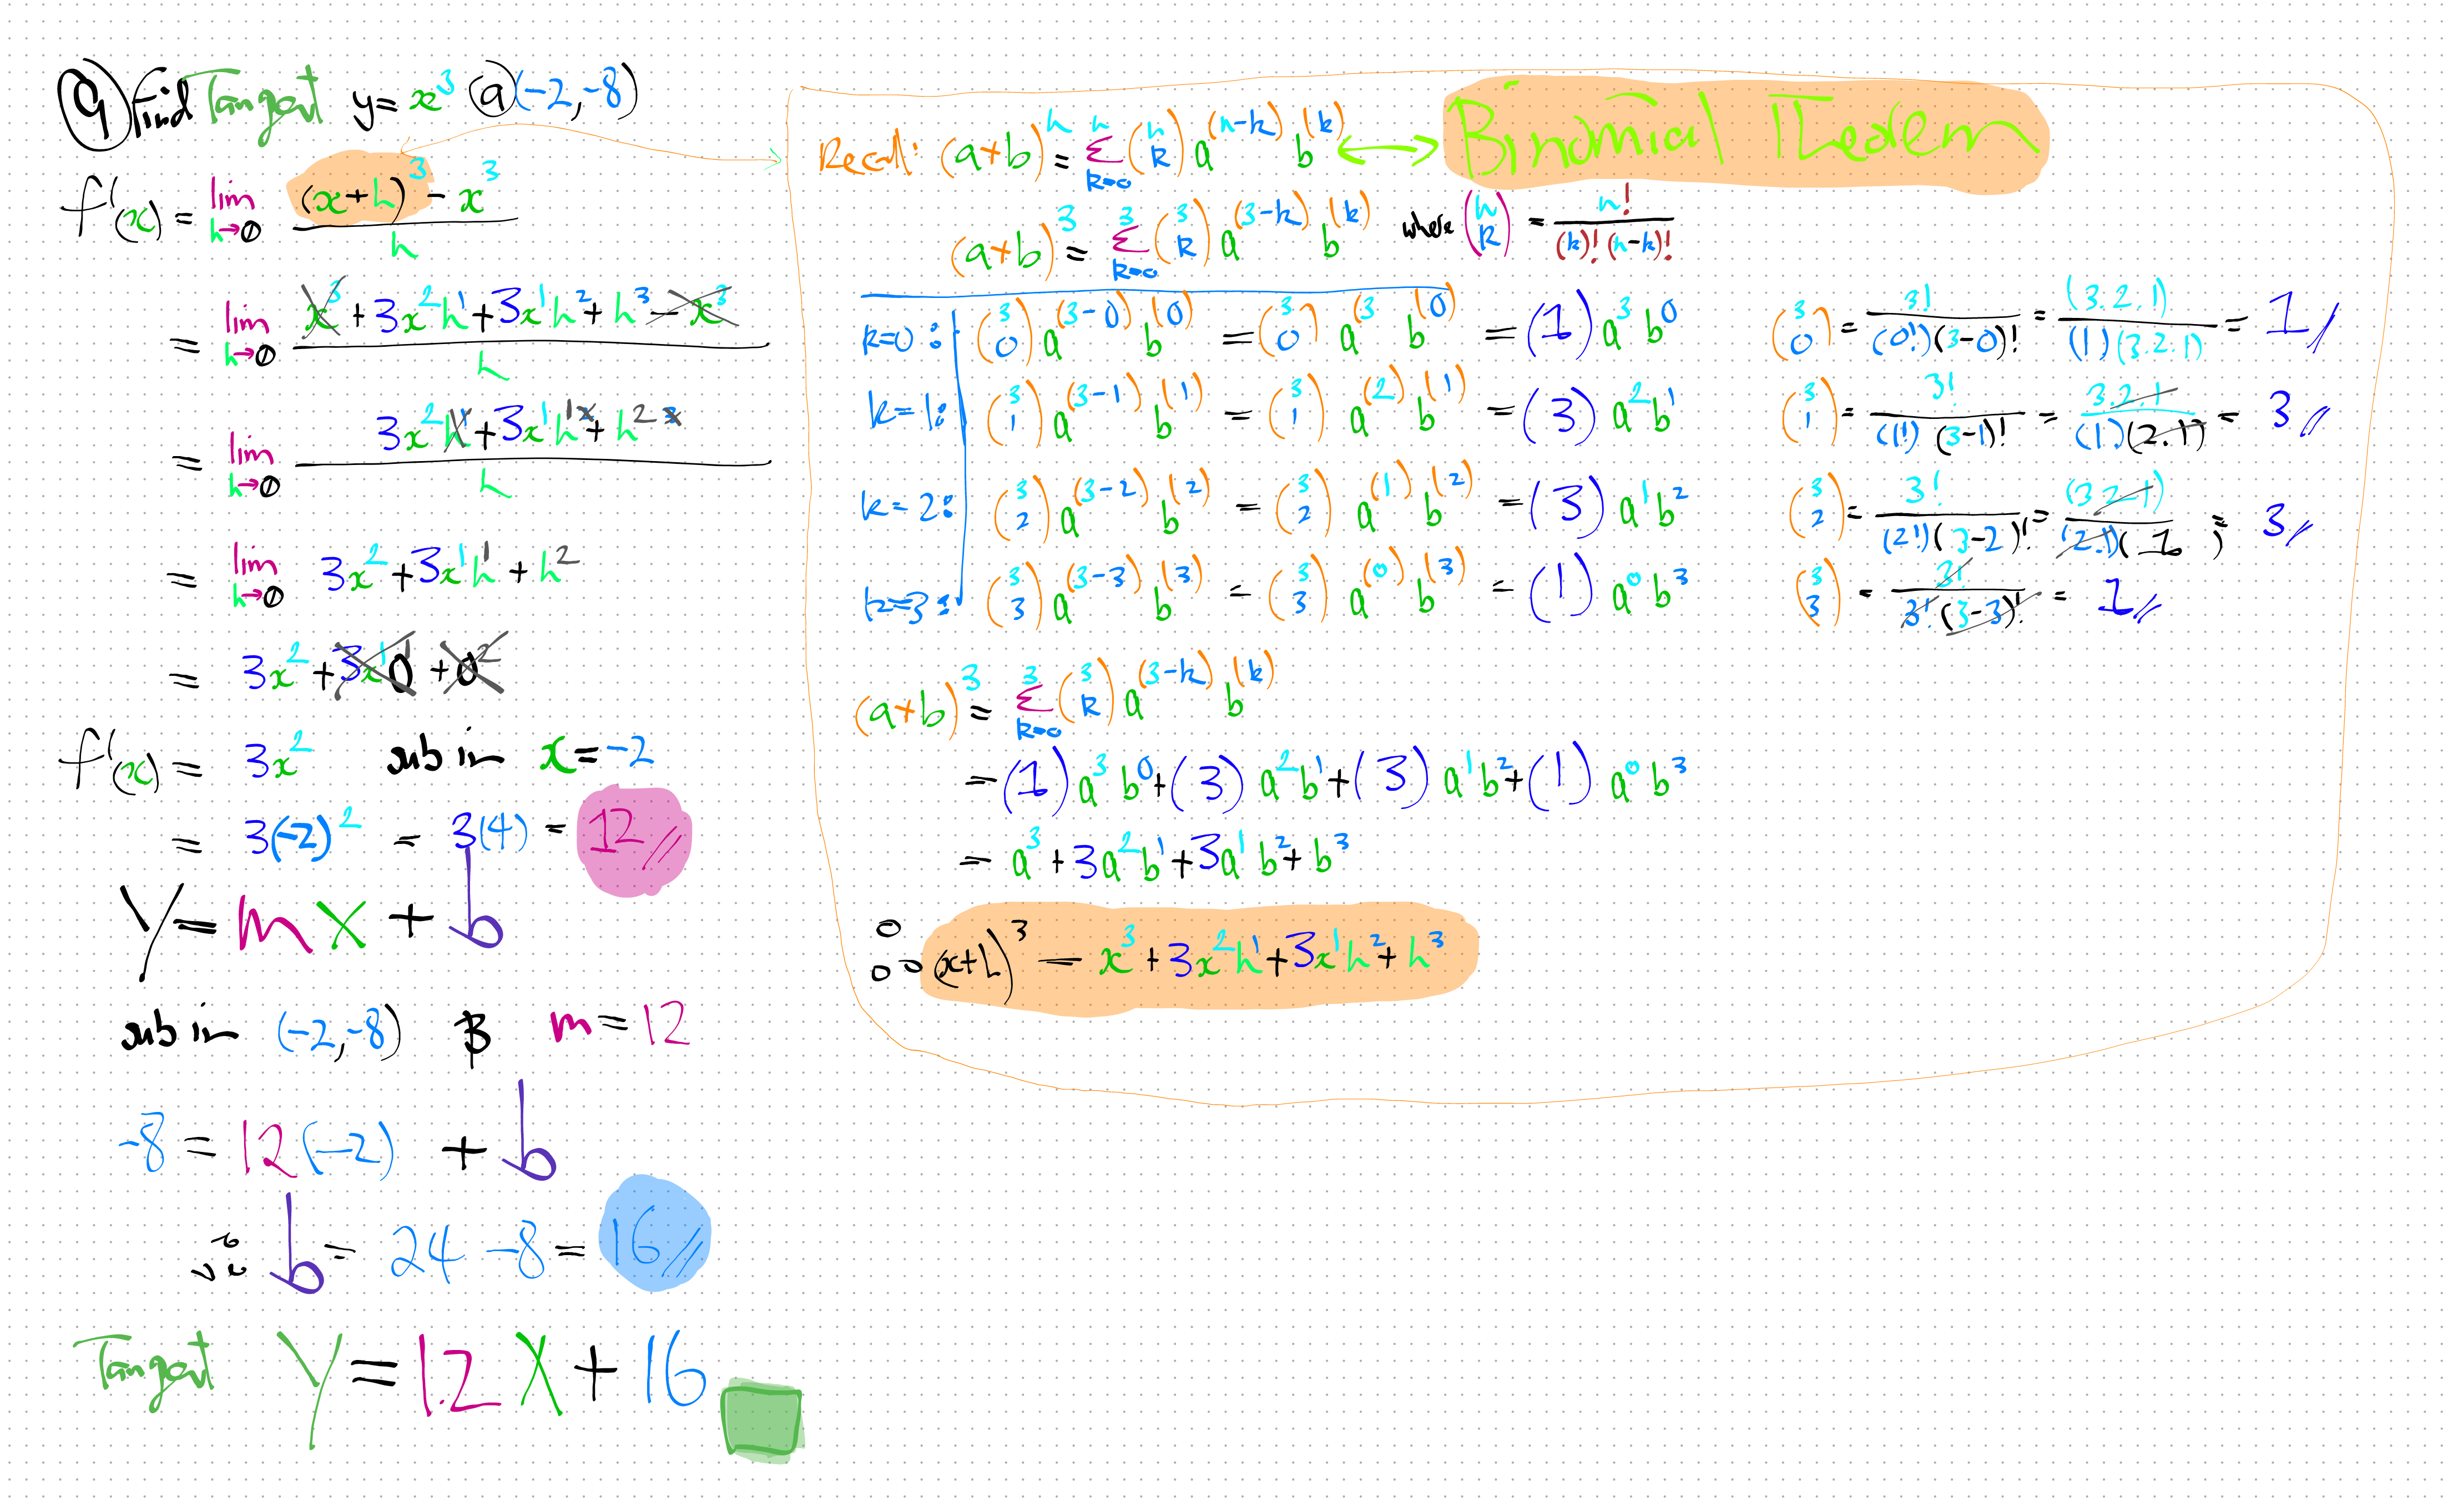 9) Find Tangent y = x³ @ (-2,-8)
f'(x) = lim h→0 ((x+h)³ - x³)/h
= lim h→0 (x³ + 3x²h¹ + 3x¹h² + h³ - x³)/h
= lim h→0 (3x²h¹ + 3x¹h¹² + h²³)/h
= lim h→0 3x² + 3x¹h¹ + h²
= 3x² + 3x¹0¹ + 0²
f'(x) = 3x² sub in x = -2
= 3(-2)² = 3(4) = 12
Y = mX + b
sub in (-2,-8) & m = 12
-8 = 12(-2) + b
∴ b = 24 - 8 = 16
Tangent Y = 12X + 16
Recall: (a+b)ⁿ = Σ_{k=0}^{n} (n k) a^(n-k) b^(k) ↔ Binomial Theorem
(a+b)³ = Σ_{k=0}^{3} (3 k) a^(3-k) b^(k) where (n k) = n!/((k)!(n-k)!)
k=0: (3 0) a^(3-0) b^(0) = (3 0) a^(3) b^(0) = (1) a³ b⁰ (3 0) = 3!/((0!)(3-0)!) = (3.2.1)/((1)(3.2.1)) = 1
k=1: (3 1) a^(3-1) b^(1) = (3 1) a^(2) b^(1) = (3) a² b¹ (3 1) = 3!/((1!)(3-1)!) = 3.2.1/((1)(2.1)) = 3
k=2: (3 2) a^(3-2) b^(2) = (3 2) a^(1) b^(2) = (3) a¹ b² (3 2) = 3!/((2!)(3-2)!) = (3.2.1)/((2.1)(1)) = 3
k=3: (3 3) a^(3-3) b^(3) = (3 3) a^(0) b^(3) = (1) a⁰ b³ (3 3) = 3!/(3!(3-3)!) = 1
(a+b)³ = Σ_{k=0}^{3} (3 k) a^(3-k) b^(k)
= (1) a³ b⁰ + (3) a² b¹ + (3) a¹ b² + (1) a⁰ b³
= a³ + 3a²b¹ + 3a¹b² + b³
∴ (x+h)³ = x³ + 3x²h¹ + 3x¹h² + h³